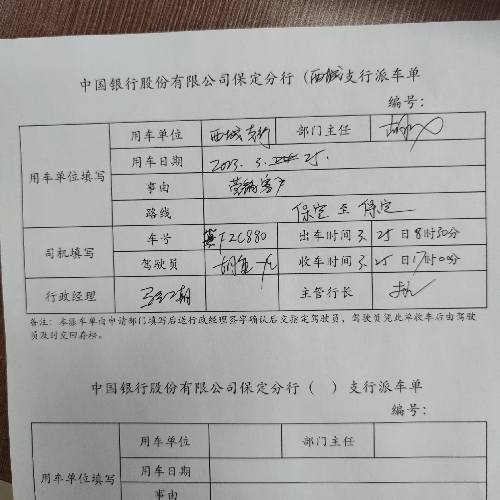 中国银行股份有限公司保定分行（西城支行派车单
编号：
用车单位 西城支行 部门主任
用车日期 2023.3. 25.
用车单位填写 事由 营销客户
路线 保定 至 保定
车号 冀F2C880 出车时间 3. 25日8时50分
司机填写
驾驶员 收车时间 3. 25日17时00分
行政经理 主管行长
备注：本派车单由申请部门填写后送行政经理签字确认后交指定驾驶员，驾驶员凭此单收车后由驾驶
员及时交回存档。
中国银行股份有限公司保定分行（ ）支行派车单
编号：
用车单位 部门主任
用车单位填写 用车日期
事由